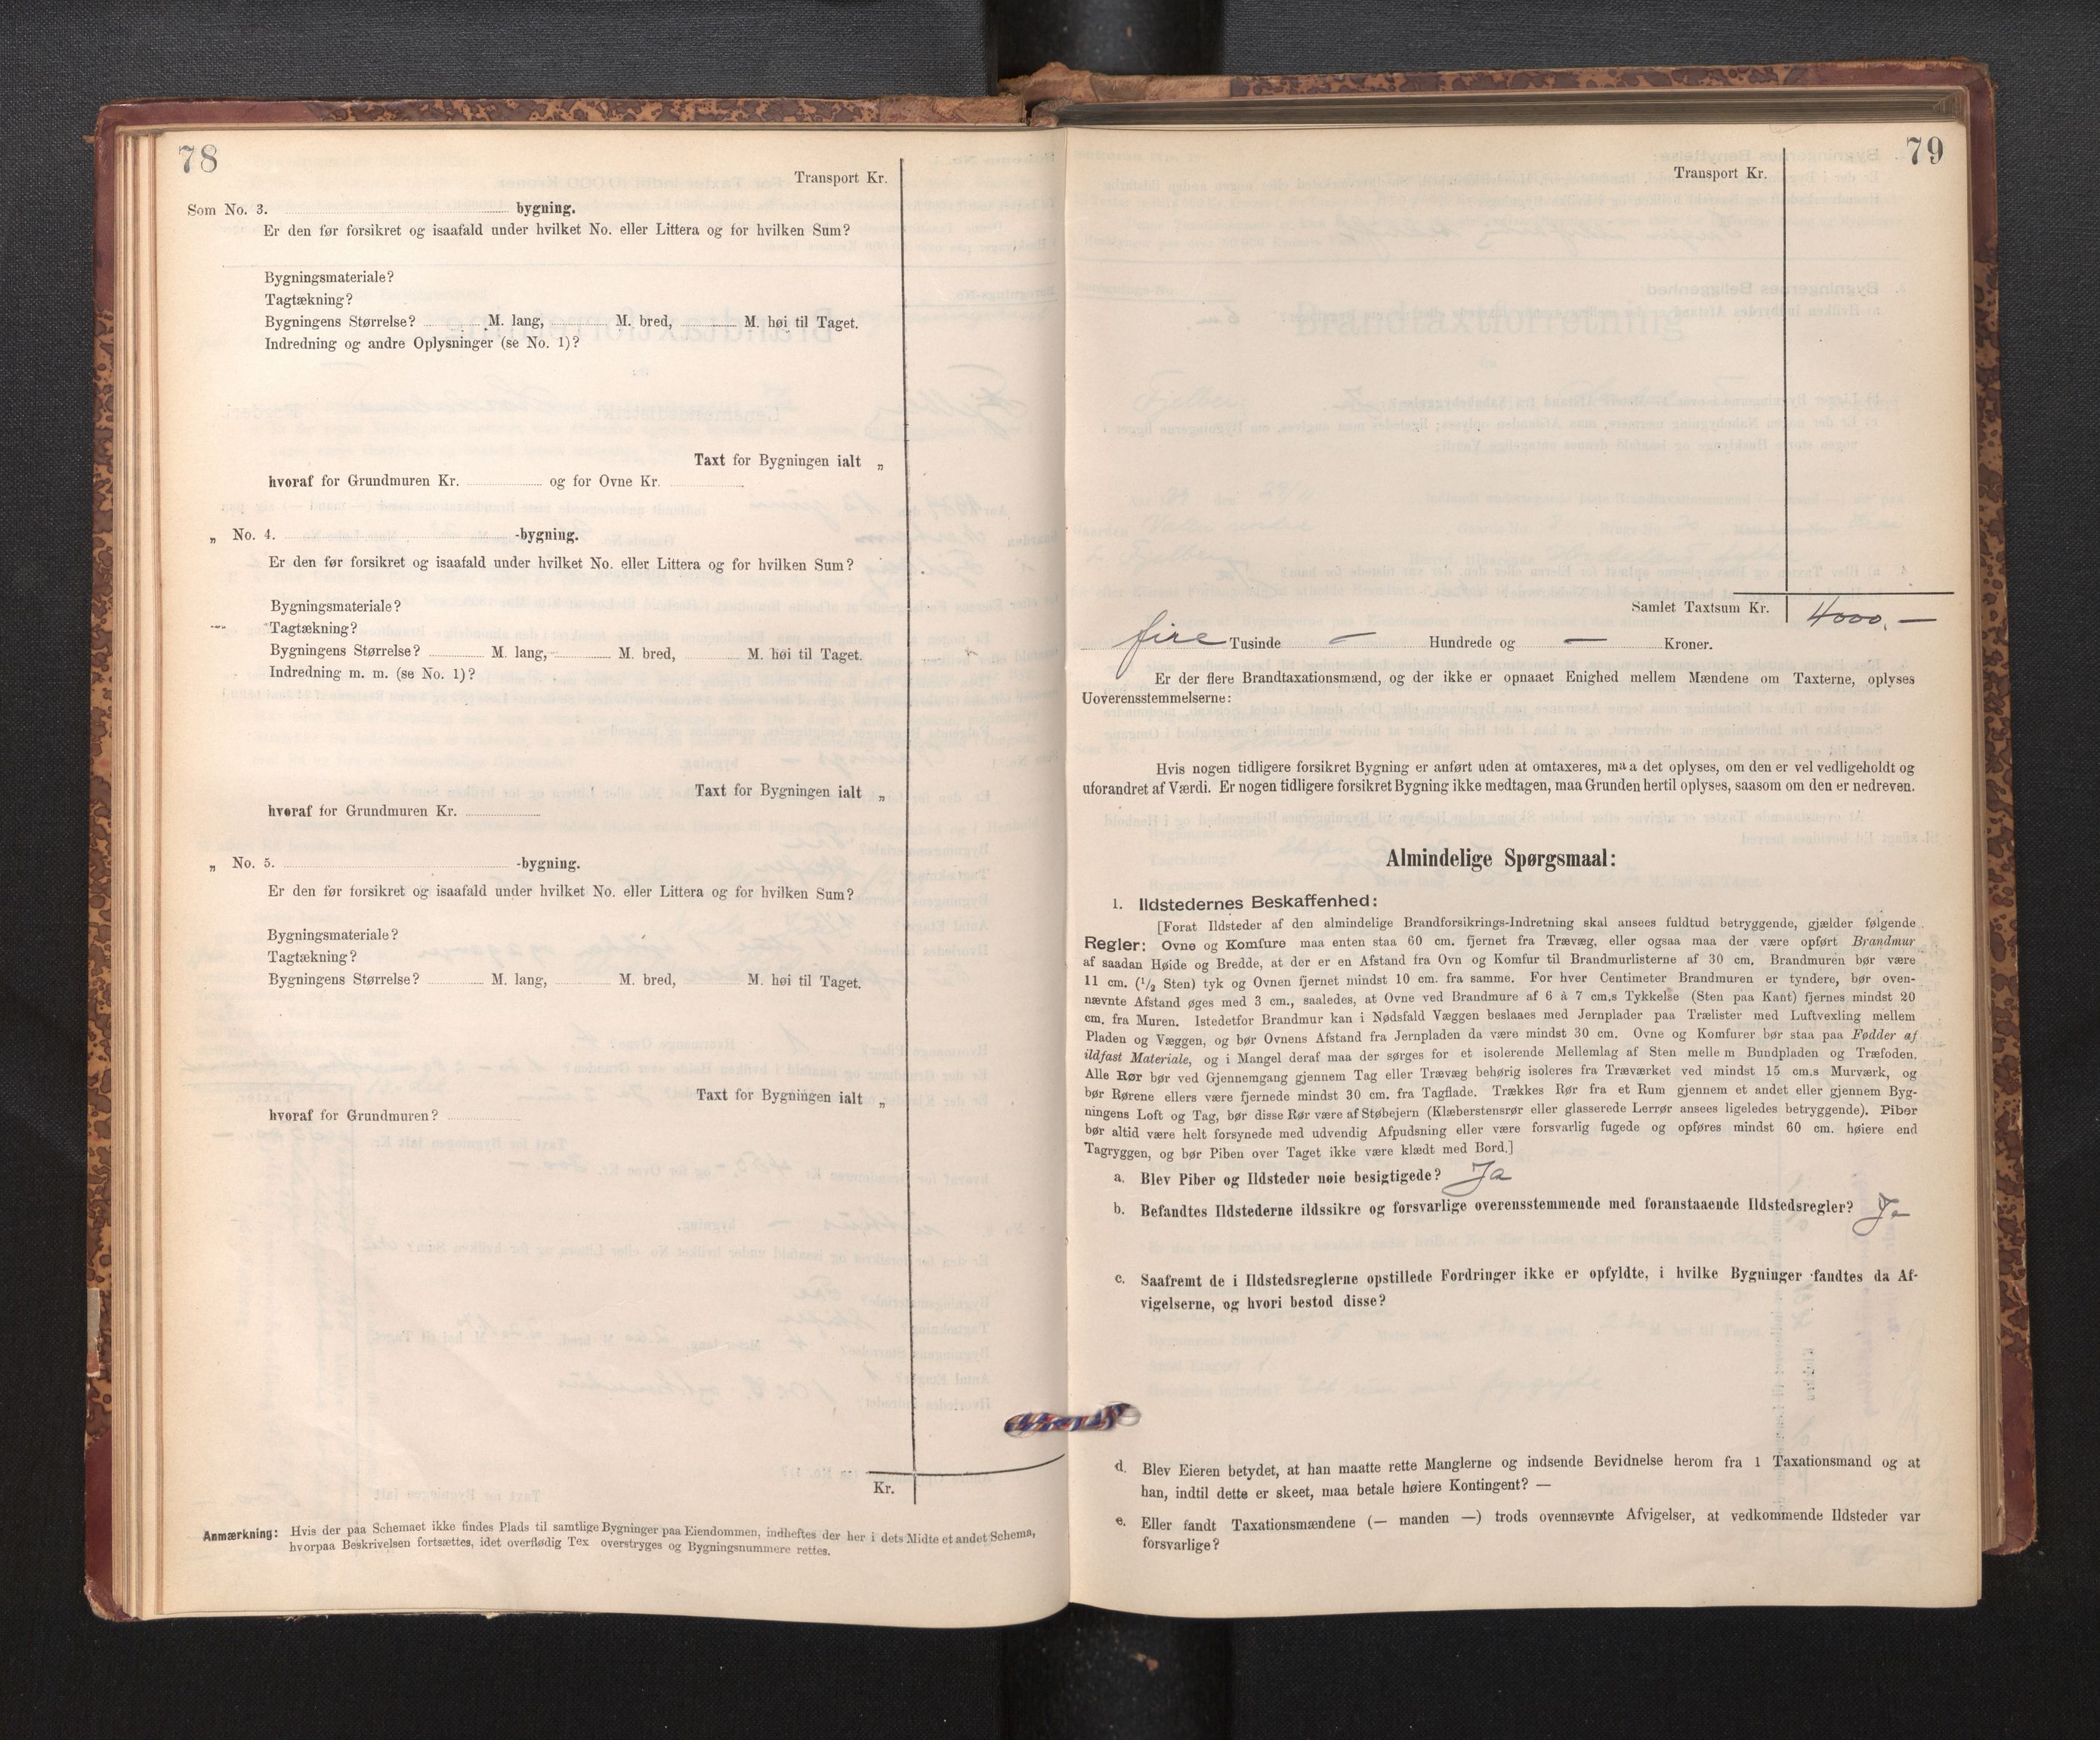 78
Transport Kr.
Som No. 3. bygning.
Er den før forsikret og isaafald under hvilket No. eller Littera og for hvilken Sum?
Bygningsmateriale?
Tagtækning?
Bygningens Størrelse? M. lang, M. bred, M. høi til Taget.
Indredning og andre Oplysninger (se No. 1)?
Taxt for Bygningen ialt „
hvoraf for Grundmuren Kr. og for Ovne Kr.
„ No. 4. -bygning.
Er den før forsikret og isaafald under hvilket No. eller Littera og for hvilken Sum?
Bygningsmateriale?
Tagtækning?
Bygningens Størrelse? M. lang, M. bred, M. høi til Taget.
Indredning m. m. (se No. 1)?
Taxt for Bygningen ialt „
hvoraf for Grundmuren Kr.
„ No. 5. -bygning.
Er den før forsikret og isaafald under hvilket No. eller Littera og for hvilken Sum?
Bygningsmateriale?
Tagtækning?
Bygningens Størrelse? M. lang, M. bred, M. høi til Taget.
Taxt for Bygningen ialt „
hvoraf for Grundmuren?
Kr.
Anmærkning: Hvis der paa Schemaet ikke findes Plads til samtlige Bygninger paa Eiendommen, indheftes der her i dets Midte et andet Schema,
hvorpaa Beskrivelsen fortsættes, idet overflødig Tex overstryges og Bygningsnummere rettes.
79
Transport Kr.
Samlet Taxtsum Kr. 4000.—
fire Tusinde — Hundrede og — Kroner.
Er der flere Brandtaxationsmænd, og der ikke er opnaaet Enighed mellem Mændene om Taxterne, oplyses
Uoverensstemmelserne:
Hvis nogen tidligere forsikret Bygning er anført uden at omtaxeres, maa det oplyses, om den er vel vedligeholdt og
uforandret af Værdi. Er nogen tidligere forsikret Bygning ikke medtagen, maa Grunden hertil oplyses, saasom om den er nedreven.
Almindelige Spørgsmaal:
1. Ildstedernes Beskaffenhed:
[Forat Ildsteder af den almindelige Brandforsikrings-Indretning skal ansees fuldtud betryggende, gjælder følgende
Regler: Ovne og Komfure maa enten staa 60 cm. fjernet fra Trævæg, eller ogsaa maa der være opført Brandmur
af saadan Høide og Bredde, at der er en Afstand fra Ovn og Komfur til Brandmurlisterne af 30 cm. Brandmuren bør være
11 cm. (1/2 Sten) tyk og Ovnen fjernet mindst 10 cm. fra samme. For hver Centimeter Brandmuren er tyndere, bør oven-
nævnte Afstand øges med 3 cm., saaledes, at Ovne ved Brandmure af 6 à 7 cm.s Tykkelse (Sten paa Kant) fjernes mindst 20
cm. fra Muren. Istedetfor Brandmur kan i Nødsfald Væggen beslaaes med Jernplader paa Trælister med Luftvexling mellem
Pladen og Væggen, og bør Ovnens Afstand fra Jernpladen da være mindst 30 cm. Ovne og Komfurer bør staa paa Fødder af
ildfast Materiale, og i Mangel deraf maa der sørges for et isolerende Mellemlag af Sten mellem Bundpladen og Træfoden.
Alle Rør bør ved Gjennemgang gjennem Tag eller Trævæg behørig isoleres fra Træværket ved mindst 15 cm.s Murværk, og
bør Rørene ellers være fjernede mindst 30 cm. fra Tagflade. Trækkes Rør fra et Rum gjennem et andet eller gjennem Byg-
ningens Loft og Tag, bør disse Rør være af Støbejern (Klæberstensrør eller glasserede Lerrør ansees ligeledes betryggende). Piber
bør altid være helt forsynede med udvendig Afpudsning eller være forsvarlig fugede og opføres mindst 60 cm. høiere end
Tagryggen, og bør Piben over Taget ikke være klædt med Bord.]
a. Blev Piber og Ildsteder nøie besigtigede? Ja
b. Befandtes Ildstederne ildssikre og forsvarlige overensstemmende med foranstaaende Ildstedsregler? Ja
c. Saafremt de i Ildstedsreglerne opstillede Fordringer ikke er opfyldte, i hvilke Bygninger fandtes da Af-
vigelserne, og hvori bestod disse?
d. Blev Eieren betydet, at han maatte rette Manglerne og indsende Bevidnelse herom fra 1 Taxationsmand og at
han, indtil dette er skeet, maa betale høiere Kontingent? —
e. Eller fandt Taxationsmændene (— manden —) trods ovennævnte Afvigelser, at vedkommende Ildsteder var
forsvarlige?